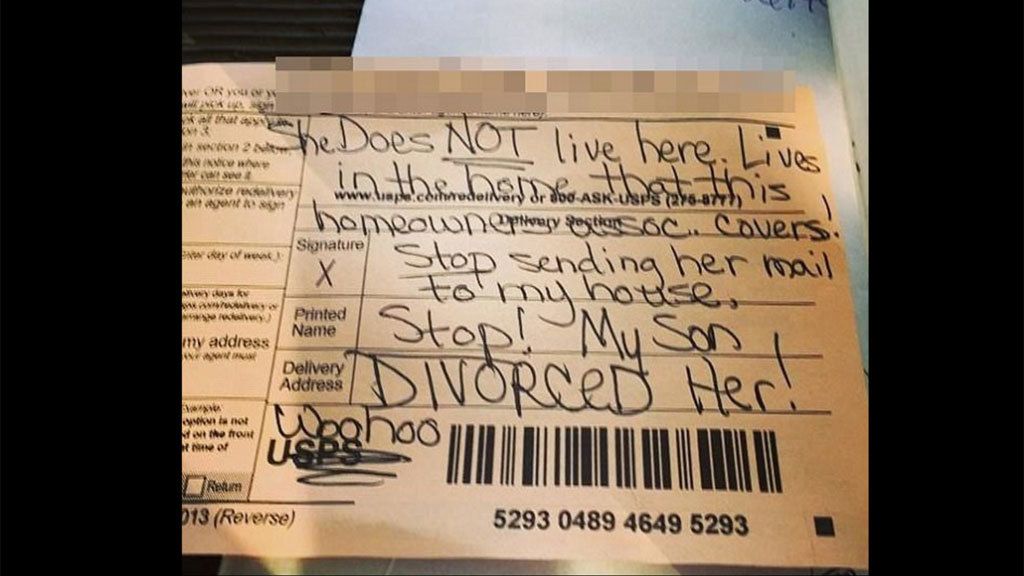 ver OR you or yo
will pick up, sign
ck all that apply
on 3.
in section 2 below,
this notice where
ier can see it.
uthorize redelivery
an agent to sign
enter day of week.):
elivery days for
sps.com/redelivery or
arrange redelivery.)
my address
our agent must
Example.
option is not
d on the front
at time of
Return
013 (Reverse)
She Does NOT live here. Lives
in the home that this
www.usps.com/redelivery or 800-ASK-USPS (275-8777)
homeowners assoc. covers!
Delivery Section
Signature
X
Stop sending her mail
to my house,
Printed
Name
Stop! My Son
Delivery
Address
DIVORCED Her!
Woohoo
USPS
5293 0489 4649 5293